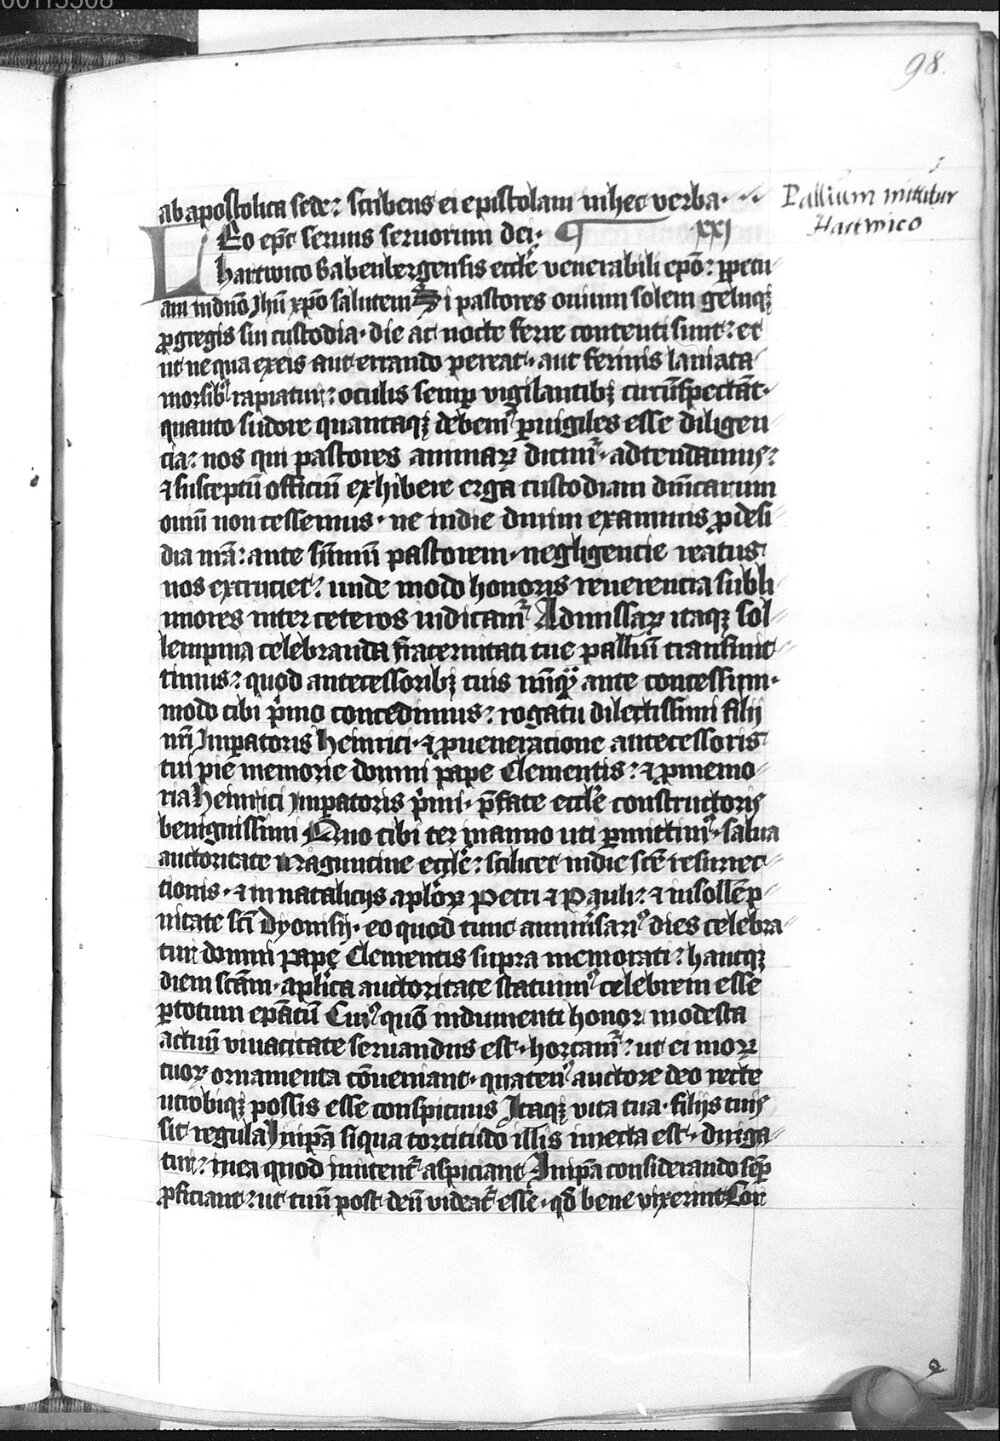 00113508
98.
ab apostolica sede: scribens ei epistolam in hec verba.
Pallium mittitur
Hartwico
Leo ep̄c seruus seruorum dei. ¶ XXI
hartwico babenbergensis eccl̄e venerabili ep̄o: ꝑpetu
am in dn̄o Jhū xp̄o salutem Si pastores ouium solem geluqꝫ
ꝓ gregis sui custodia. die ac nocte ferre contenti sunt: et
ut ne qua ex eis aut errando pereat. aut ferinis laniata
morsibꝫ rapiatur: oculis semꝑ vigilantibꝫ circūspectāt.
quanto sudore quantaqꝫ debemꝰ ꝑuigiles esse diligen
cia: nos qui pastores animarꝫ dicimr̄. adtendamus:
⁊ susceptū officiū exhibere erga custodiam dn̄icarum
ouiū non cessemus. ne in die diuini examinis ꝓ desi
dia nr̄a: ante sūmum pastorem. negligencie reatus
nos excruciet: unde modo honoris reuerencia subli
miores inter ceteros iudicamr̄ Ad missarꝫ itaqꝫ sol
lempnia celebranda fraternitati tue palliū transmit
timus: quod antecessoribꝫ tuis nūqꝫ ante concessum.
modo tibi pͥmo concedimus: rogatu dilectissimi filij
nr̄i Imꝑatoris heinrici. ⁊ ꝓ veneracione antecessoris
tui pie memorie domni pape Clementis: ⁊ ꝓ memo
ria Heinrici imꝑatoris pͥmi. p̄fate eccl̄e constructoris
benignissimi Quo tibi ter in anno uti ꝑmittimꝰ. salua
auctoritate maguntine eccl̄e: scilicet in die sc̄e resurrec
tionis. ⁊ in natalicijs apl̄orꝫ Petri ⁊ Pauli: ⁊ in sollēp
nitate sc̄i Dyonisij. eo quod tunc anniūsariꝰ dies celebra
tur domni pape Clementis supra memorati: hancqꝫ
diem sc̄am. apl̄ica auctoritate statuimꝰ celebrem esse
ꝑ totum ep̄atū Cuiꝰ quō indumenti honor modesta
actuū viuacitate seruandus est. hortamr̄: ut ei morꝫ
tuorꝫ ornamenta cōueniant. quatenꝰ auctore deo recte
utrobiqꝫ possis esse conspicuus Itaqꝫ vita tua. filijs tuis
sit regula In ip̄a si qua tortitudo illis iniecta est. diriga
tur: in ea quod imitentr̄ aspiciant In ip̄a considerando semꝑ
ꝓficiant: ut tuū post deū videatr̄ esse. qd̄ bene vixerint Cor